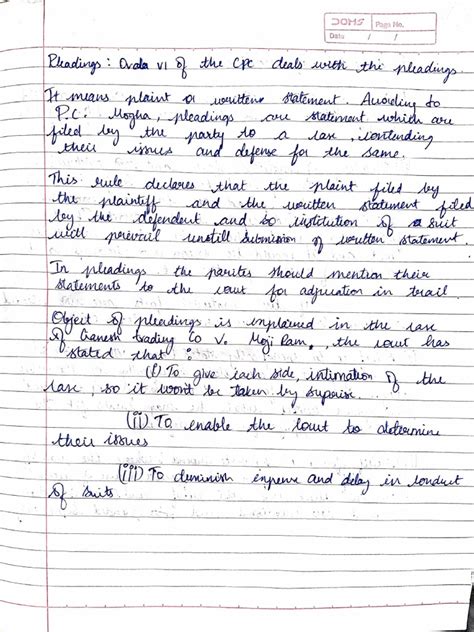 DOMS Page No.
Date / /
Pleadings : Order VI of the CPC deals with the pleadings
It means plaint or written statement. According to
P.C. Mogha, pleadings are statement which are
filed by the party to a case, contending
their issues and defense for the same.
This rule declares that the plaint filed by
the plaintiff and the written statement filed
by the defendent and so institution of a suit
will prevail unstill submission of written statement
In pleadings the parites should mention their
statements to the court for adjucation in trail
Object of pleadings is explained in the case
of Ganesh trading Co V. Moji Ram, the court has
stated that :
(i) To give each side, intimation of the
case, so it wont be taken by suprise.
(ii) To enable the court to determine
their issues
(iii) To diminish expense and delay in conduct
of suits